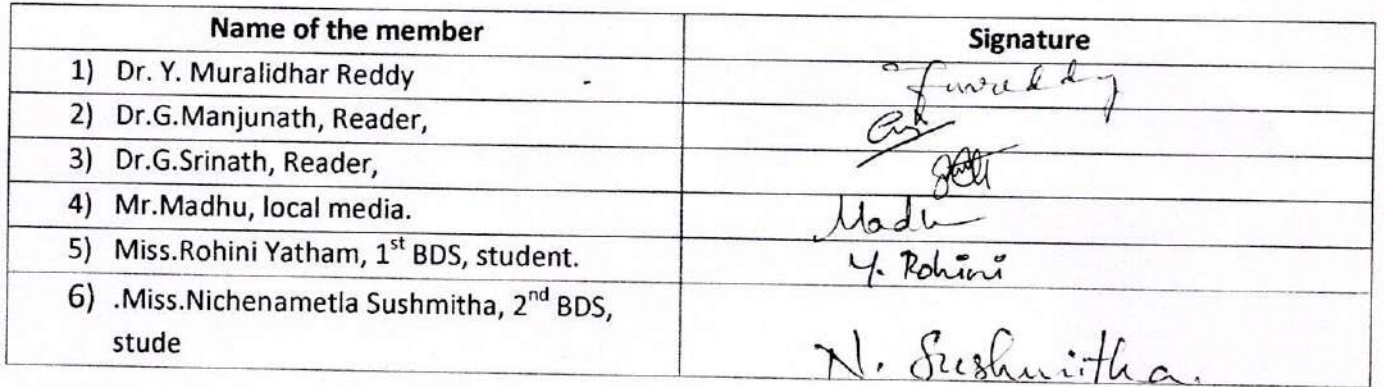 Name of the member Signature
1) Dr. Y. Muralidhar Reddy -
2) Dr.G.Manjunath, Reader,
3) Dr.G.Srinath, Reader,
4) Mr.Madhu, local media. Madhu
5) Miss.Rohini Yatham, 1st BDS, student. Y. Rohini
6) .Miss.Nichenametla Sushmitha, 2nd BDS,
stude N. Sushmitha.